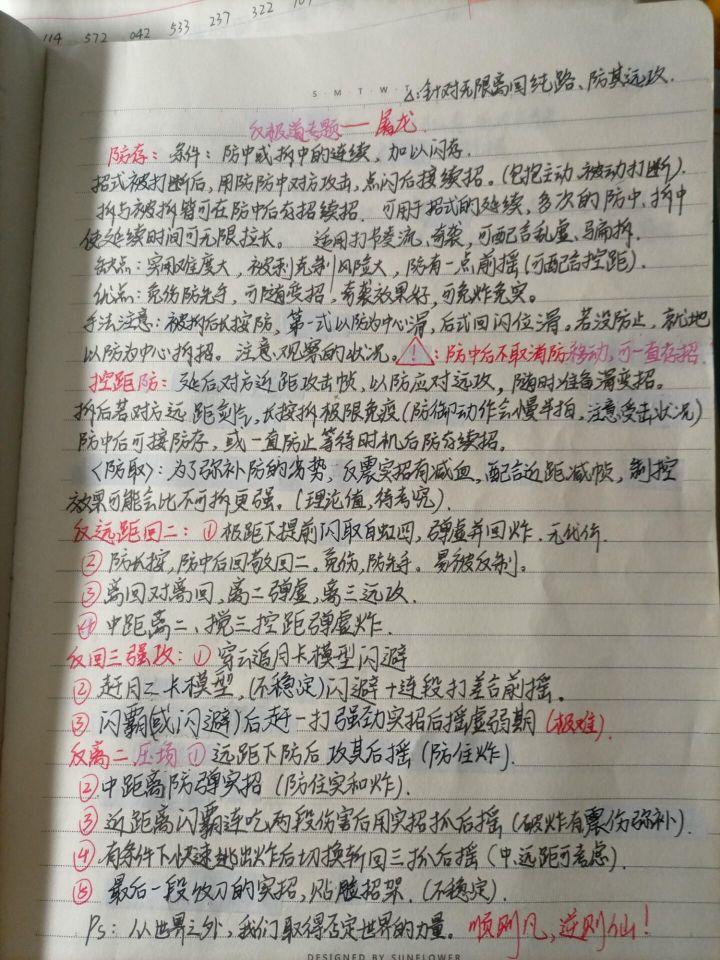 114 572 042 533 237 322
S · M · T · W · T
针对无限离回纯路、防其远攻.
反极道专题——屠龙.
防存：条件：防中或拆中的连续，加以闪存.
招式被打断后，用防防中对方攻击，点闪后接续招。(包抱主动、被动打断).
拆与被拆皆可在防中后存招续招. 可用于招式的延续，多次的防中、拆中
使延续时间可无限拉长。 适用打卡变流、奇袭，可配合乱虚、骗拆.
缺点：实用难度大，被刹克制风险大，防有一点前摇(可配合控距).
优点：免伤防先手，可随变招，奇袭效果好，可免炸免实。
手法注意：被拆后长按防，第一式以防为中心滑，后式回闪位滑。若没防止，就地
以防为中心拆招。注意观察的状况。⚠：防中后不取消防移动，可一直存招.
控距防：延后对方近距攻击帧，以防应对远攻，随时准备滑变招。
拆后若对方远距剑气，长按拆极限免疫(防御动作会慢半拍，注意受击状况)
防中后可接防存，或一直防止等待时机后防存续招.
〈防取〉：为了弥补防的劣势，反震实招有减血，配合近距减帧，制控
效果可能会比不可拆更强。(理论值，待考究).
反远距回二：① 极距下提前闪取自虹四，弹虚并回炸. 无代价.
② 防长按，防中后回敬回二。免伤，防先手。易被反制。
③ 离回对离回，离二弹虚，离三远攻.
④ 中距离二、搅三控距弹虚炸.
反回三强攻：① 穿云追月卡模型闪避
② 赶月二卡模型，(不稳定)闪避+连段打差合前摇。
③ 闪霸(或闪避)后赶一打强劲实招后摇虚弱期(极难).
反离二压场 ① 远距下防后攻其后摇(防住炸).
② 中距离防弹实招 (防住实和炸).
③ 近距离闪霸连吃两段伤害后用实招抓后摇(破炸有震伤弥补).
④ 有条件下快速逃出炸后切换斩回三抓后摇(中、远距可考虑).
⑤ 最后一段饮刀的实招，贴脸招架. (不稳定).
Ps：从世界之外，我们取得否定世界的力量。顺则凡，逆则仙！
DESIGNED BY SUNFLOWER